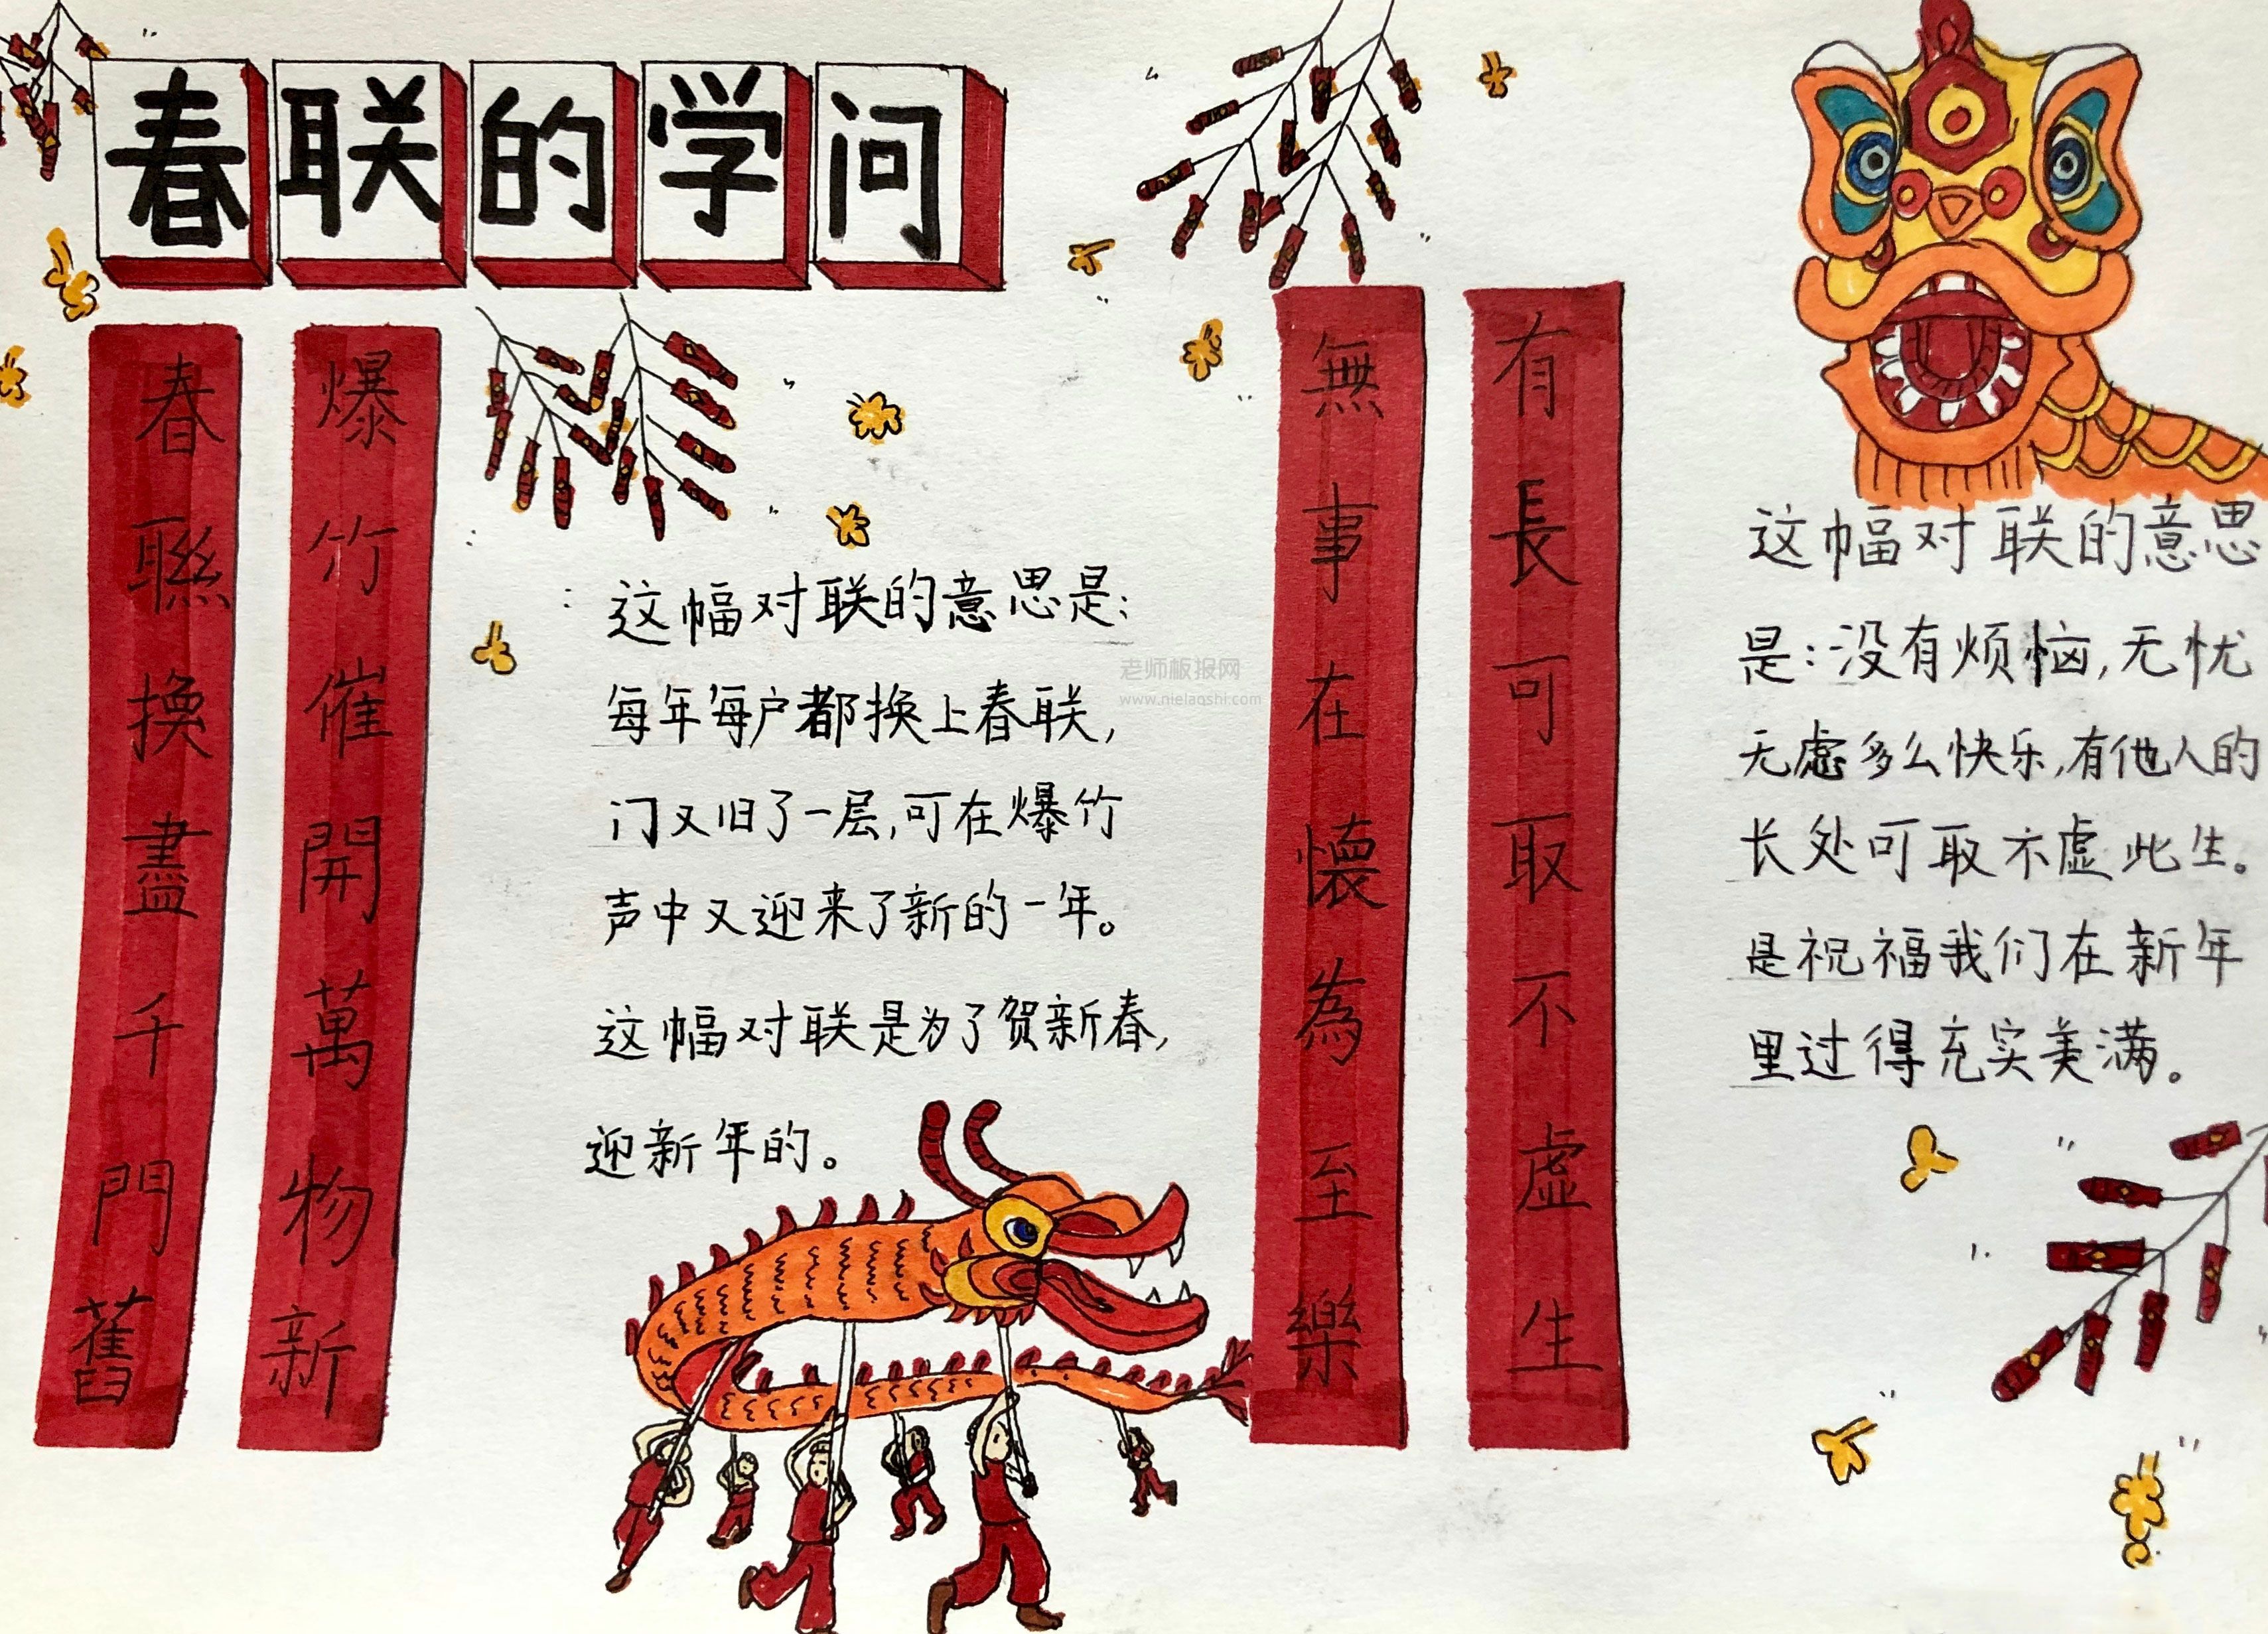 春联的学问
春聯換盡千門舊
爆竹催開萬物新
这幅对联的意思是:
每年每户都换上春联,
门又旧了一层,可在爆竹
声中又迎来了新的一年。
这幅对联是为了贺新春,
迎新年的。
老师板报网
www.nielaoshi.com
無事在懷為至樂
有長可取不虚生
这幅对联的意思
是:没有烦恼,无忧
无虑多么快乐,有他人的
长处可取不虚此生。
是祝福我们在新年
里过得充实美满。